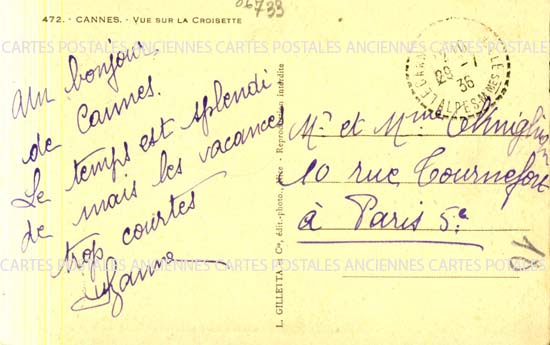 06733
472. - CANNES. - VUE SUR LA CROISETTE
CARTES POSTALES ANCIENNES CARTES POSTALES ANCIENNES CARTES POSTALES ANCIENNES
Un bonjour
de Cannes.
Le temps est splendi
de mais les vacances
trop courtes
L. GILLETTA & Cie, édit.-photo., Nice - Reproduction interdite
28 -1
36
ALPES-MMES
Mr et Mme
10 rue Tournefort
à Paris 5e
10
CARTES POSTALES ANCIENNES CARTES POSTALES ANCIENNES CARTES POSTALES ANCIENNES